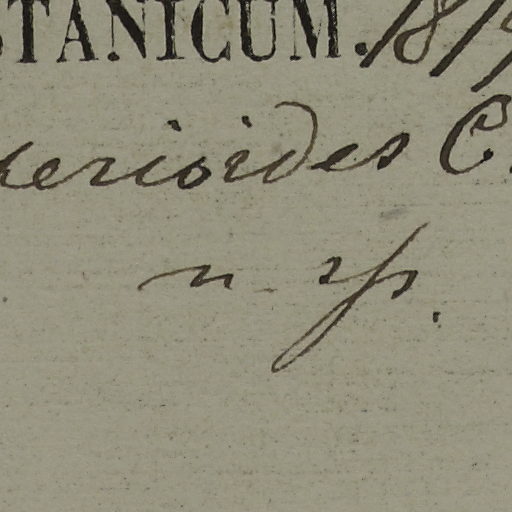 STANICUM. 1879
uerioides C.
n. sp.